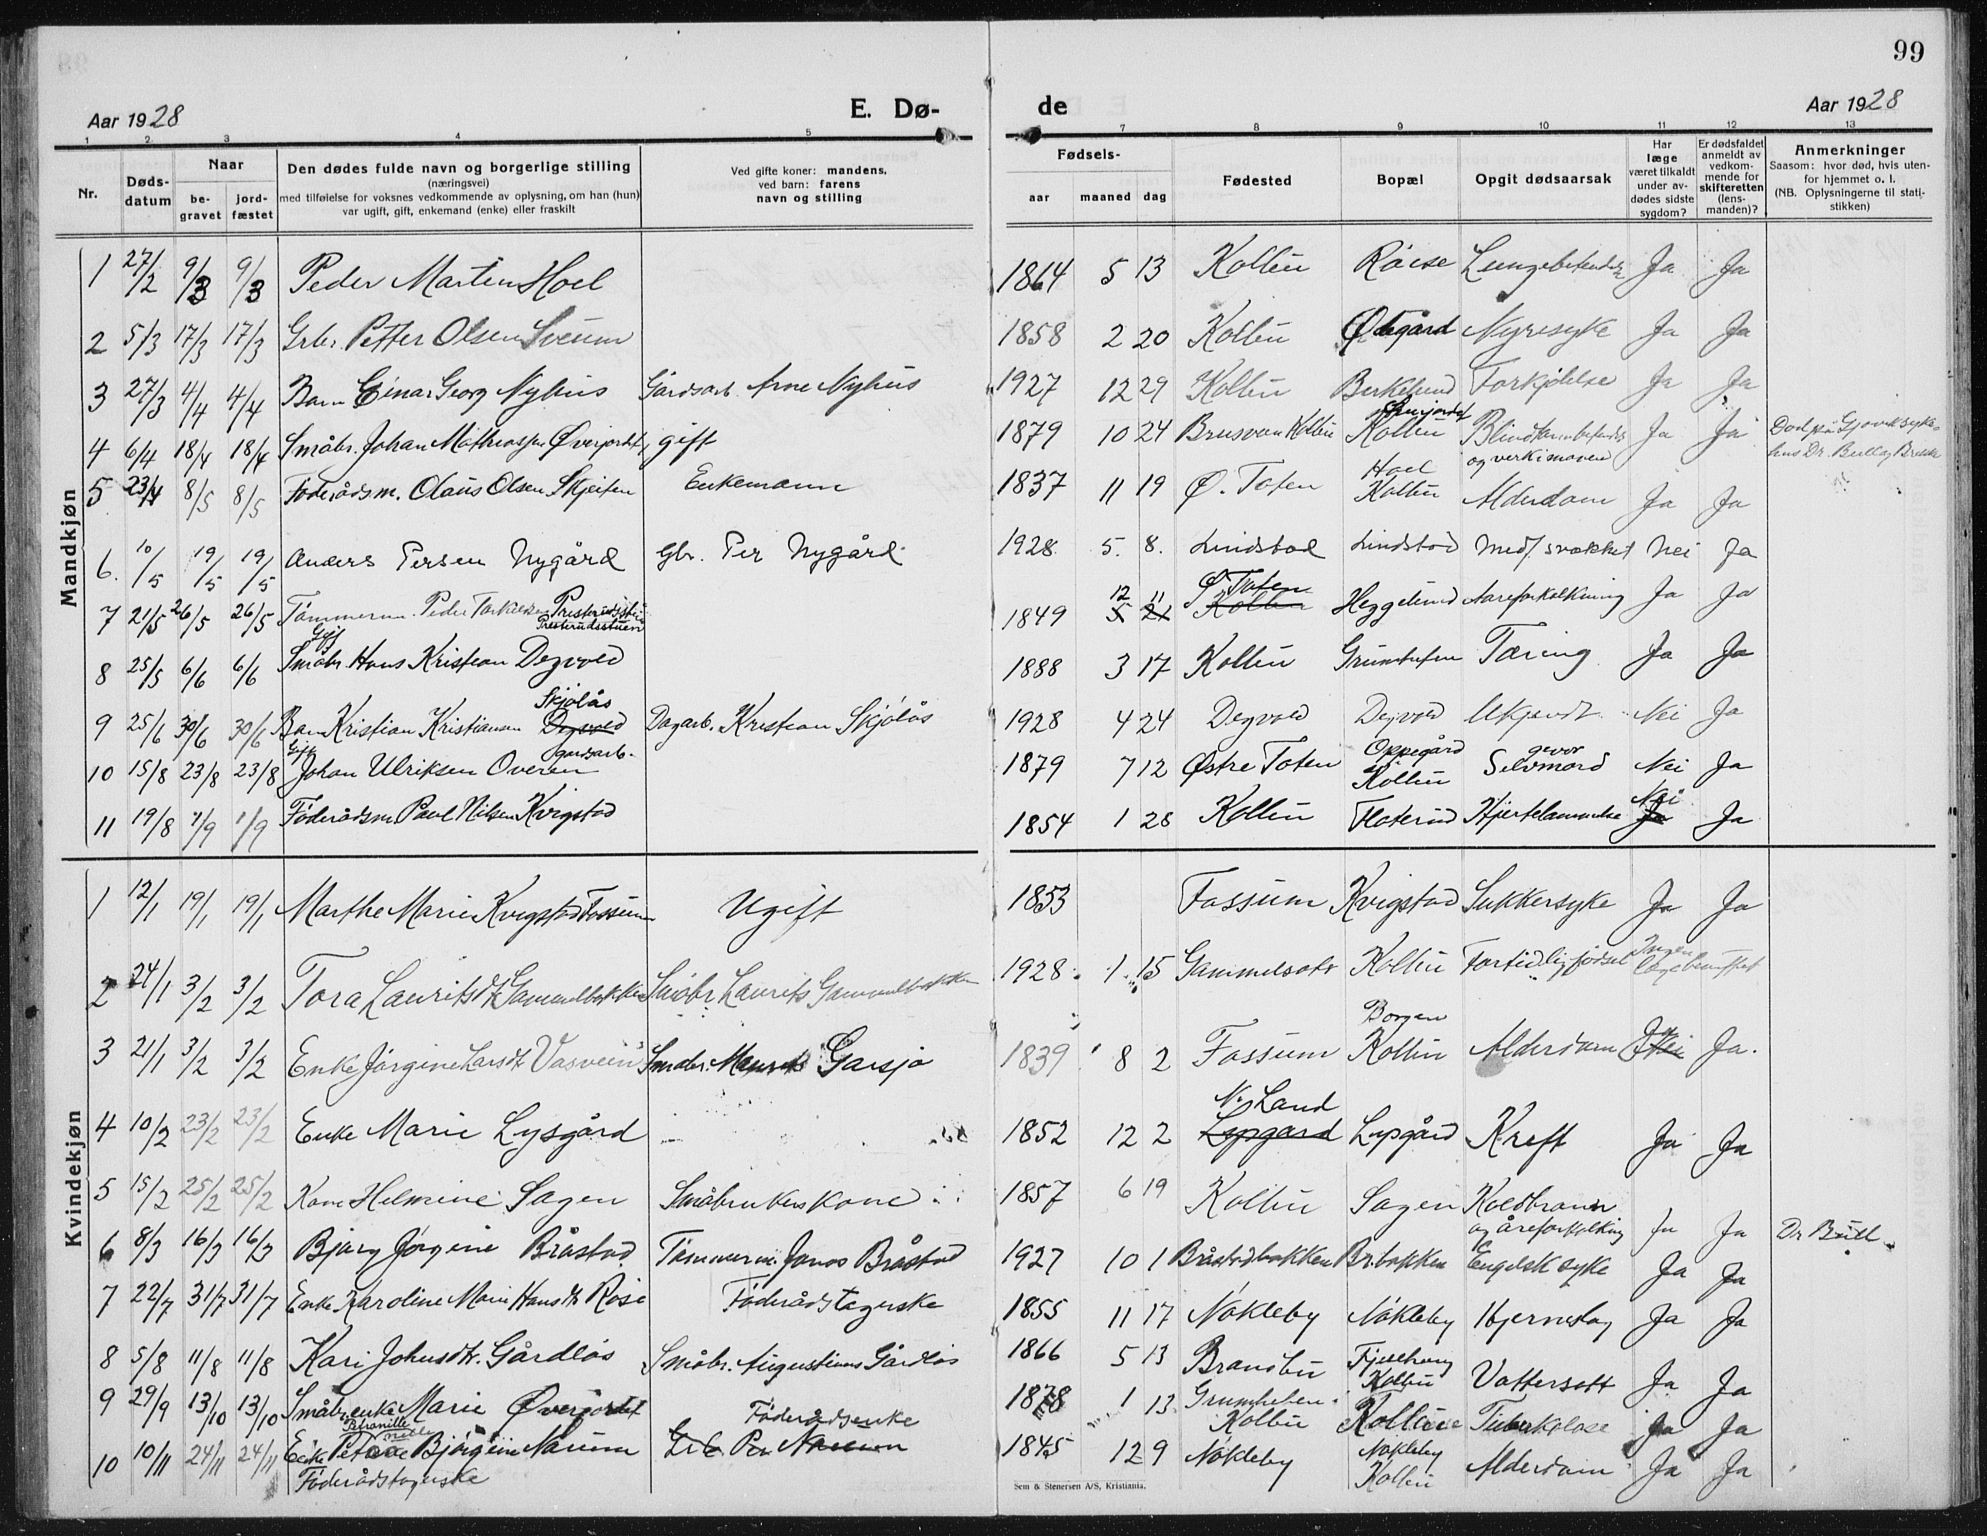 99
Aar 1928 E. Dø- de Aar 1928
1 2 3 4 5 7 8 9 10 11 12 13
Nr.
Døds-datum
Naar
be-gravet
jord-fæstet
Den dødes fulde navn og borgerlige stilling
(næringsvei)
med tilføielse for voksnes vedkommende av oplysning, om han (hun)
var ugift, gift, enkemand (enke) eller fraskilt
Ved gifte koner: mandens,
ved barn: farens
navn og stilling
Fødsels-
aar maaned dag
Fødested
Bopæl
Opgit dødsaarsak
Har
læge
været tilkaldt
under av-
dødes sidste
sygdom?
Er dødsfaldet
anmeldt av
vedkom-
mende for
skifteretten
(lens-
manden)?
Anmerkninger
Saasom: hvor død, hvis uten-
for hjemmet o. l.
(NB. Oplysningerne til stati-
stikken)
Mandkjøn
1 27/2 9/3 9/3 Peder Martin Hoel 1864 5 13 Kolbu Röise Ja Ja
2 5/3 17/3 17/3 Grbr. Petter Olsen Sveum 1858 2 20 Kolbu Ødegård Nyresyke Ja Ja
3 27/3 4/4 4/4 Barn Einar Georg Nyhus Gårdsarb. Arne Nyhus 1927 12 29 Kolbu Birkelund Forkjölelse Ja Ja
4 6/4 18/4 18/4 Småbr. Johan Mathiassen Øverjordet gift 1879 10 24 Kolbu Kolbu og verk i maven Ja Ja Död på Gjövik syke-
hus Dr.
5 23/4 8/5 8/5 Föderådsm. Olaus Olsen Skjeifen Enkemann 1837 11 19 Ø. Toten Hoel Kolbu Alderdom Ja Ja
6. 10/5 19/5 19/5 Anders Persen Nygård Gbr. Per Nygård 1928 5. 8. Lindstad Lindstad Medf. svakhet Nei Ja
7 21/5 26/5 26/5 Tömmerm. Peder Prestrudsstuen 1849 12 5 11 21 Ø. Toten Kolbu Heggelund Aareforkalkning Ja Ja
8 25/5 6/6 6/6 Gift Småbr. Hans Kristian Degvold 1888 3 17 Kolbu Tæring Ja Ja
9 25/6 30/6 30/6 Barn Kristian Kristiansen Skjölås Degvold Dagarb. Kristian Skjölås 1928 4 24 Degvold Degvold Ukjendt Nei Ja
10 15/8 23/8 23/8 Gift Johan Ulriksen Overen gårdsarb. 1879 7 12 Østre Toten Oppegård Kolbu Selvmord Nei Ja
11 19/8 1/9 1/9 Föderådsm. Paul Nilsen Kvigstad 1854 1 28 Kolbu Floterud Hjertelammelse Nei Ja Ja
Kvindekjøn
1 12/1 19/1 19/1 Marthe Marie Kvigstad Fossum Ugift 1853 Fossum Kvigstad Sukkersyke Ja Ja
2 24/1 3/2 3/2 Tora Lauritsdt. Gammelbakken Småbr. Laurits Gammelbakken 1928 1 15 Kolbu Fortidlig födsel Ingen
3 21/1 3/2 3/2 Enke Jörgine Larsdt. Garsjö 1839 8 2 Fossum Borgen Kolbu Alderdom Nei Ja.
4 10/2 23/2 23/2 Enke Marie Lysgård – 1852 12 2 N. Land Lysgård Lysgård Kreft Ja Ja
5 15/2 25/2 25/2 Kone Helmine Sagen Småbrukers kone 1857 6 19 Kolbu Sagen Koldbrann
og åreforkalking Ja Ja Dr. Bull
6 8/3 16/3 16/3 Bjarg Jørgine Bråstad Tömmerm. Jonas Bråstad 1927 10 1 Bråstadbakken Br.bakken Engelsk syke Ja Ja
7 22/7 31/7 31/7 Enke Karoline Marie Hansdt. Röise Föderådstagerske 1855 11 17 Nökleby Nökleby Hjerneslag Ja Ja
8 5/8 11/8 11/8 Kari Johnsdt. Gårdlös Småbr. Augustinus Gårdlös 1866 5 13 Brandbu Fjellhaug Kolbu Vattersott Ja Ja
9 29/9 13/10 13/10 Småbr.enke Marie Øverjordet 1878 1 13 Kolbu Kolbu Tuberkolose Ja Ja
10 10/11 24/11 24/11 Enke Petronille Björgiin Narum Föderådsenke Grbr. Per Narum 1845 12 9 Nökleby Nökleby Kolbu Alderdom Ja Ja
Föderådstagerske
Sem & Stenersen A/S, Kristiania.